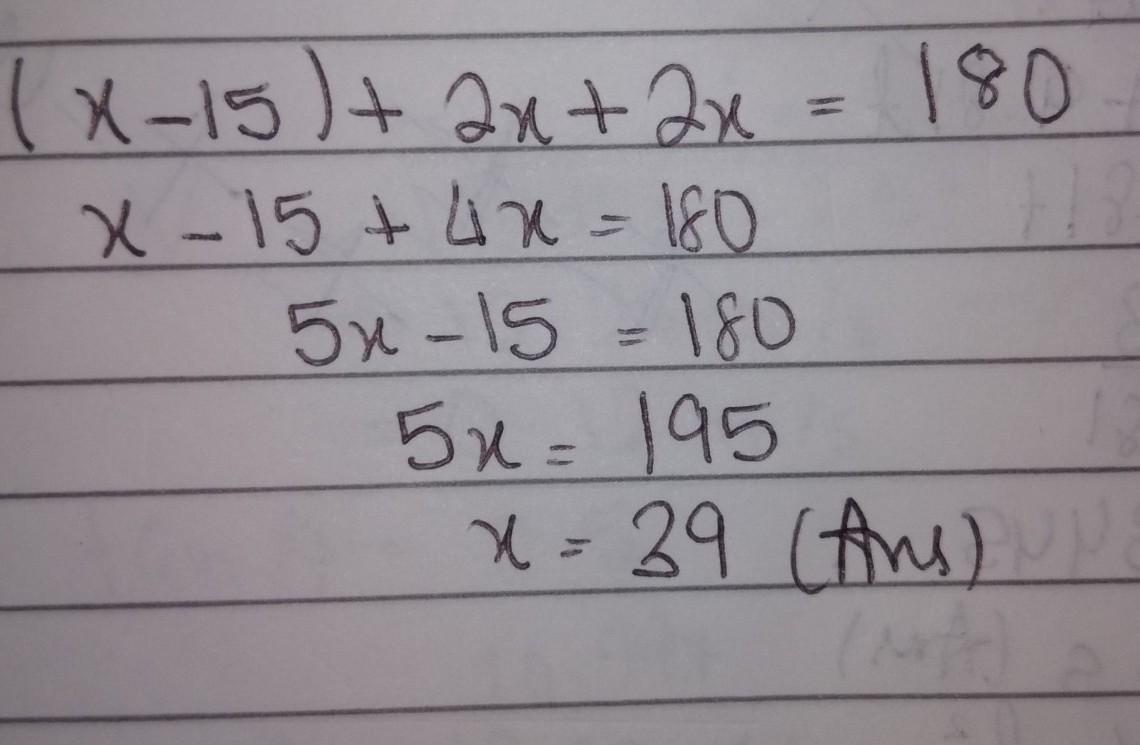 (x-15)+ 2x+2x = 180
x-15 + 4x = 180
5x-15 = 180
5x = 195
x = 39 (Ans)